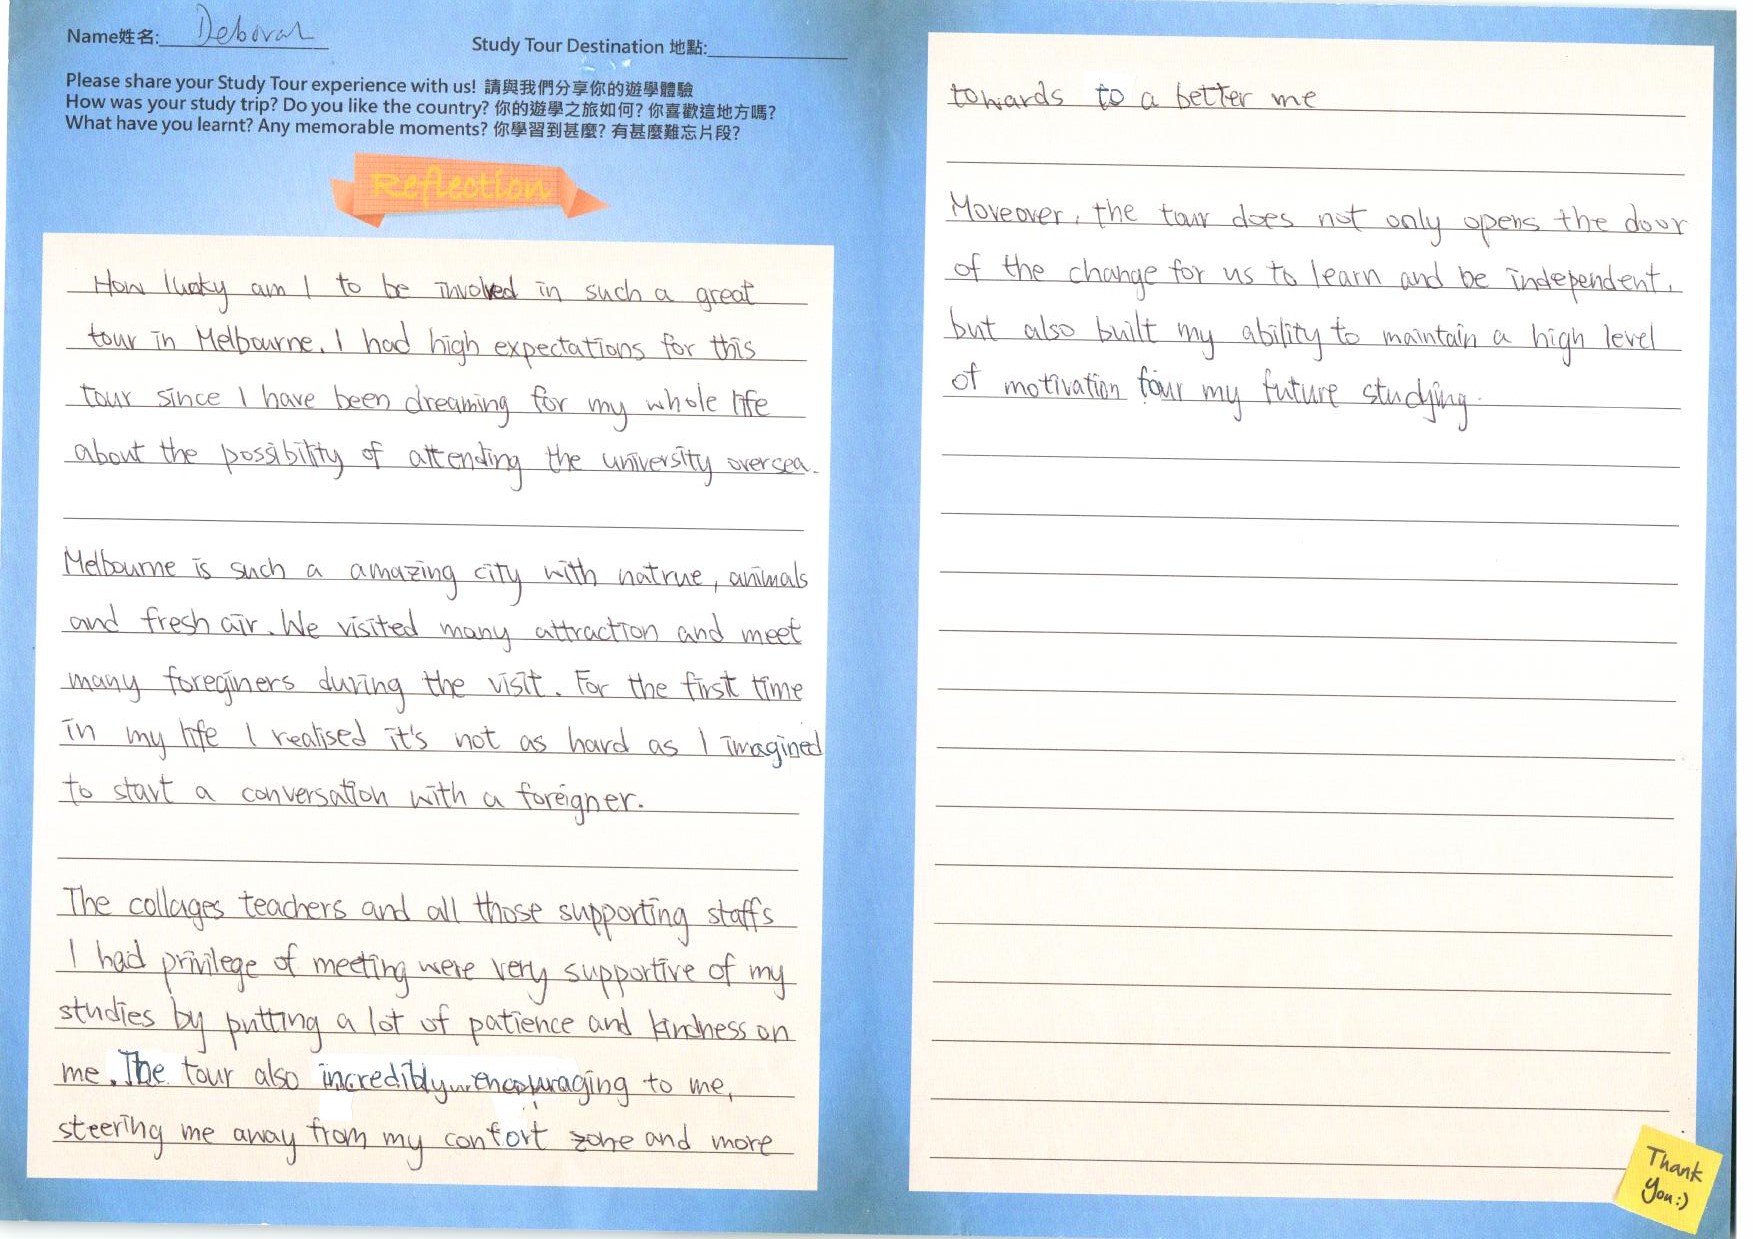 Name姓名: Deborah
Study Tour Destination 地點:
Please share your Study Tour experience with us! 請與我們分享你的遊學體驗
How was your study trip? Do you like the country? 你的遊學之旅如何? 你喜歡這地方嗎?
What have you learnt? Any memorable moments? 你學習到甚麼? 有甚麼難忘片段?
Reflection
How lucky am I to be involved in such a great
tour in Melbourne. I had high expectations for this
tour since I have been dreaming for my whole life
about the possibility of attending the university oversea.
Melbourne is such a amazing city with natrue, animals
and fresh air. We visited many attraction and meet
many foreginers during the visit. For the first time
in my life I realised it's not as hard as I imagined
to start a conversation with a foreigner.
The collages teachers and all those supporting staffs
I had privilege of meeting were very supportive of my
studies by putting a lot of patience and kindness on
me. The tour also incredibly encouraging to me,
steering me away from my confort zone and more
towards to a better me
Moveover, the tour does not only opens the door
of the change for us to learn and be independent,
but also built my ability to maintain a high level
of motivation four my future studying.
Thank
You:)